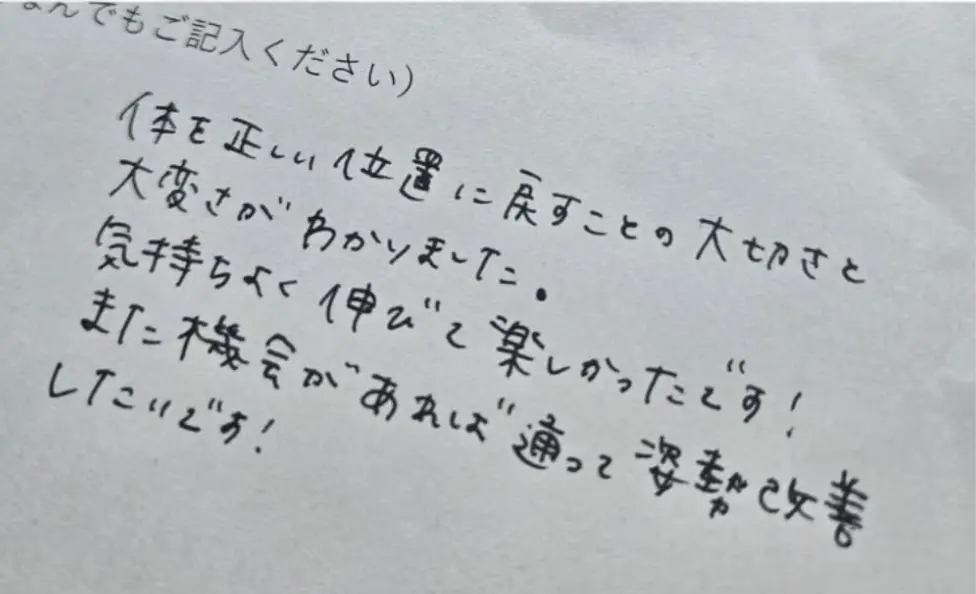 なんでもご記入ください）
体を正しい位置に戻すことの大切さと
大変さがわかりました.
気持ちよく伸びて楽しかったです!
また機会があれば通って姿勢改善
したいです!